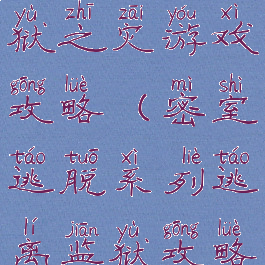 yù zhī zāi yóu xì
狱之灾游戏
gōng lüè mì shì
攻略(密室
táo tuō xì liè táo
逃脱系列逃
lí jiān yù gōng lüè
离监狱攻略